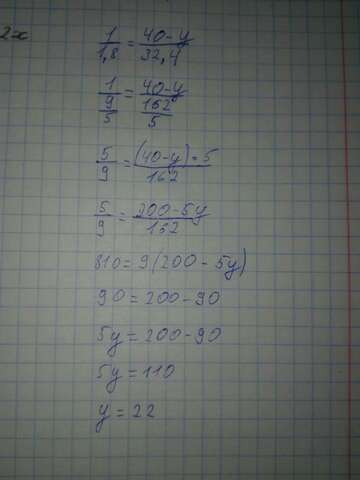 2x
1/1,8 = 40-y/32,4
1/9/5 = 40-y/162/5
5/9 = (40-y)·5/162
5/9 = 200-5y/162
810=9(200-5y)
90=200-90
5y=200-90
5y=110
y=22